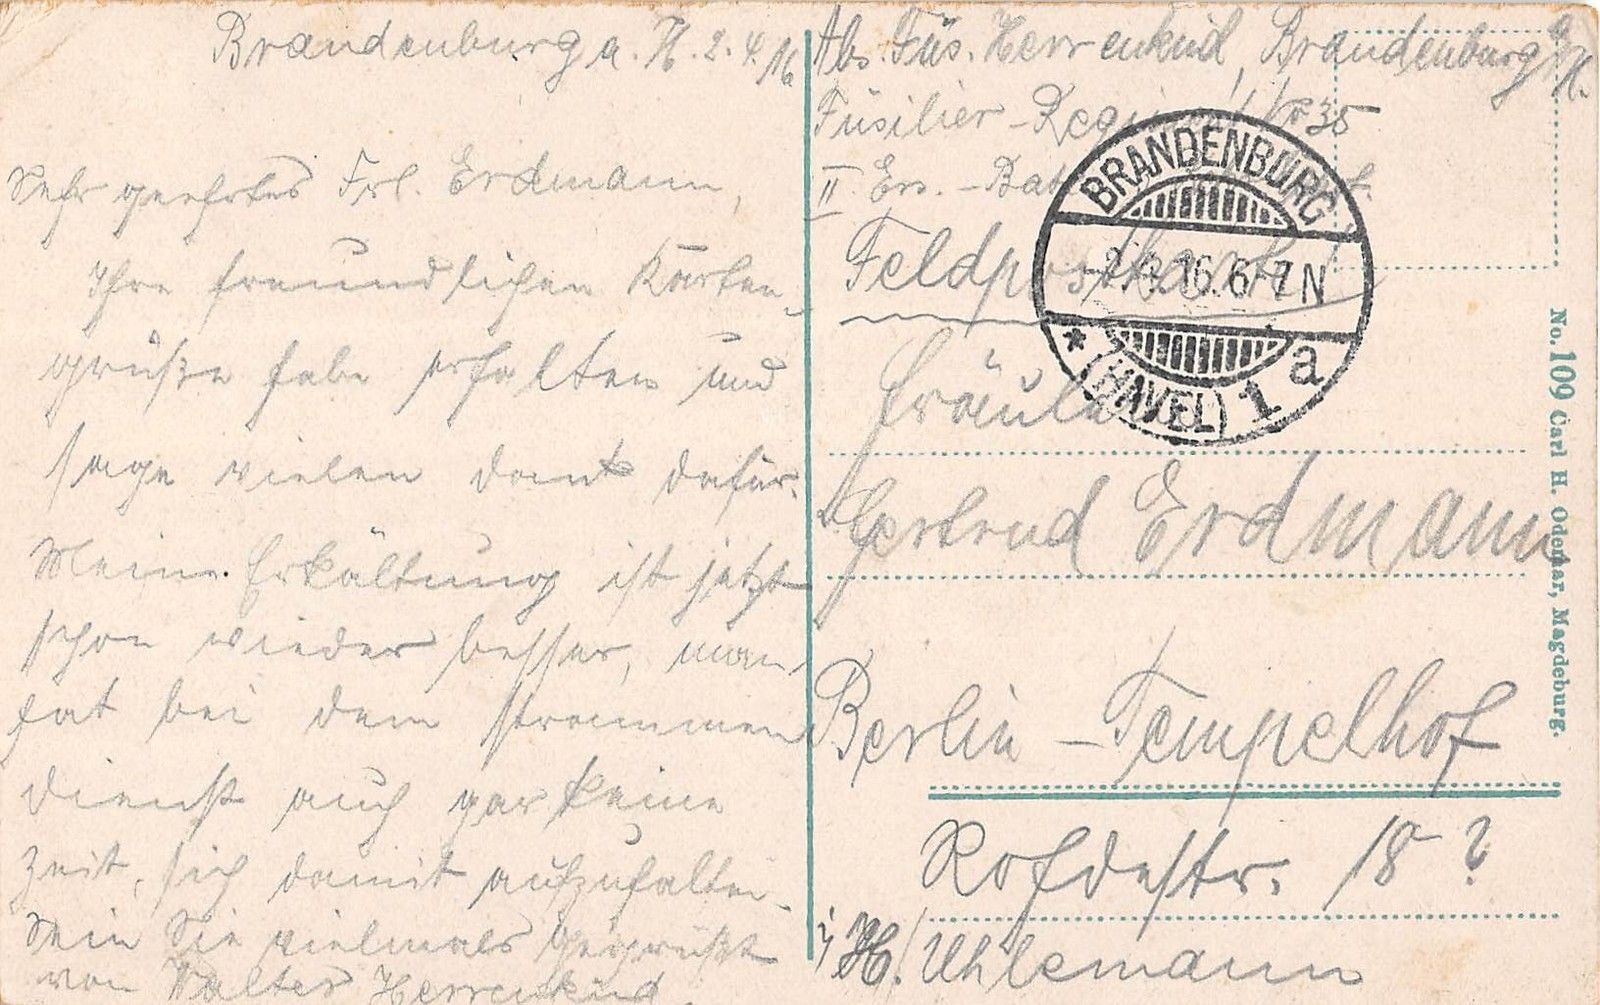 Brandenburg a. H. 2.4.16
Sehr geehrtes Frl. Erdmann,
Ihre freundlichen Karten-
grüße habe erhalten und
sage vielen Dank dafür.
Meine Erkältung ist jetzt
schon wieder besser, man
hat bei dem strammen
Dienst auch gar keine
Zeit, sich damit aufzuhalten.
Sein Sie vielmals gegrüßt
von Walter Herrenkind.
Abs. Füs. Herrenkind, Brandenburg a/H.
Füsilier-Regiment No 35
II Ers.-Bat
Feldpostkarte
Fräulein
Gertrud Erdmann
Berlin-Tempelhof
18 ?
H./Uhlemann
BRANDENBURG
-2.4.16.6-7N
* (HAVEL) 1 a
No. 109 Carl H. Odemar, Magdeburg.